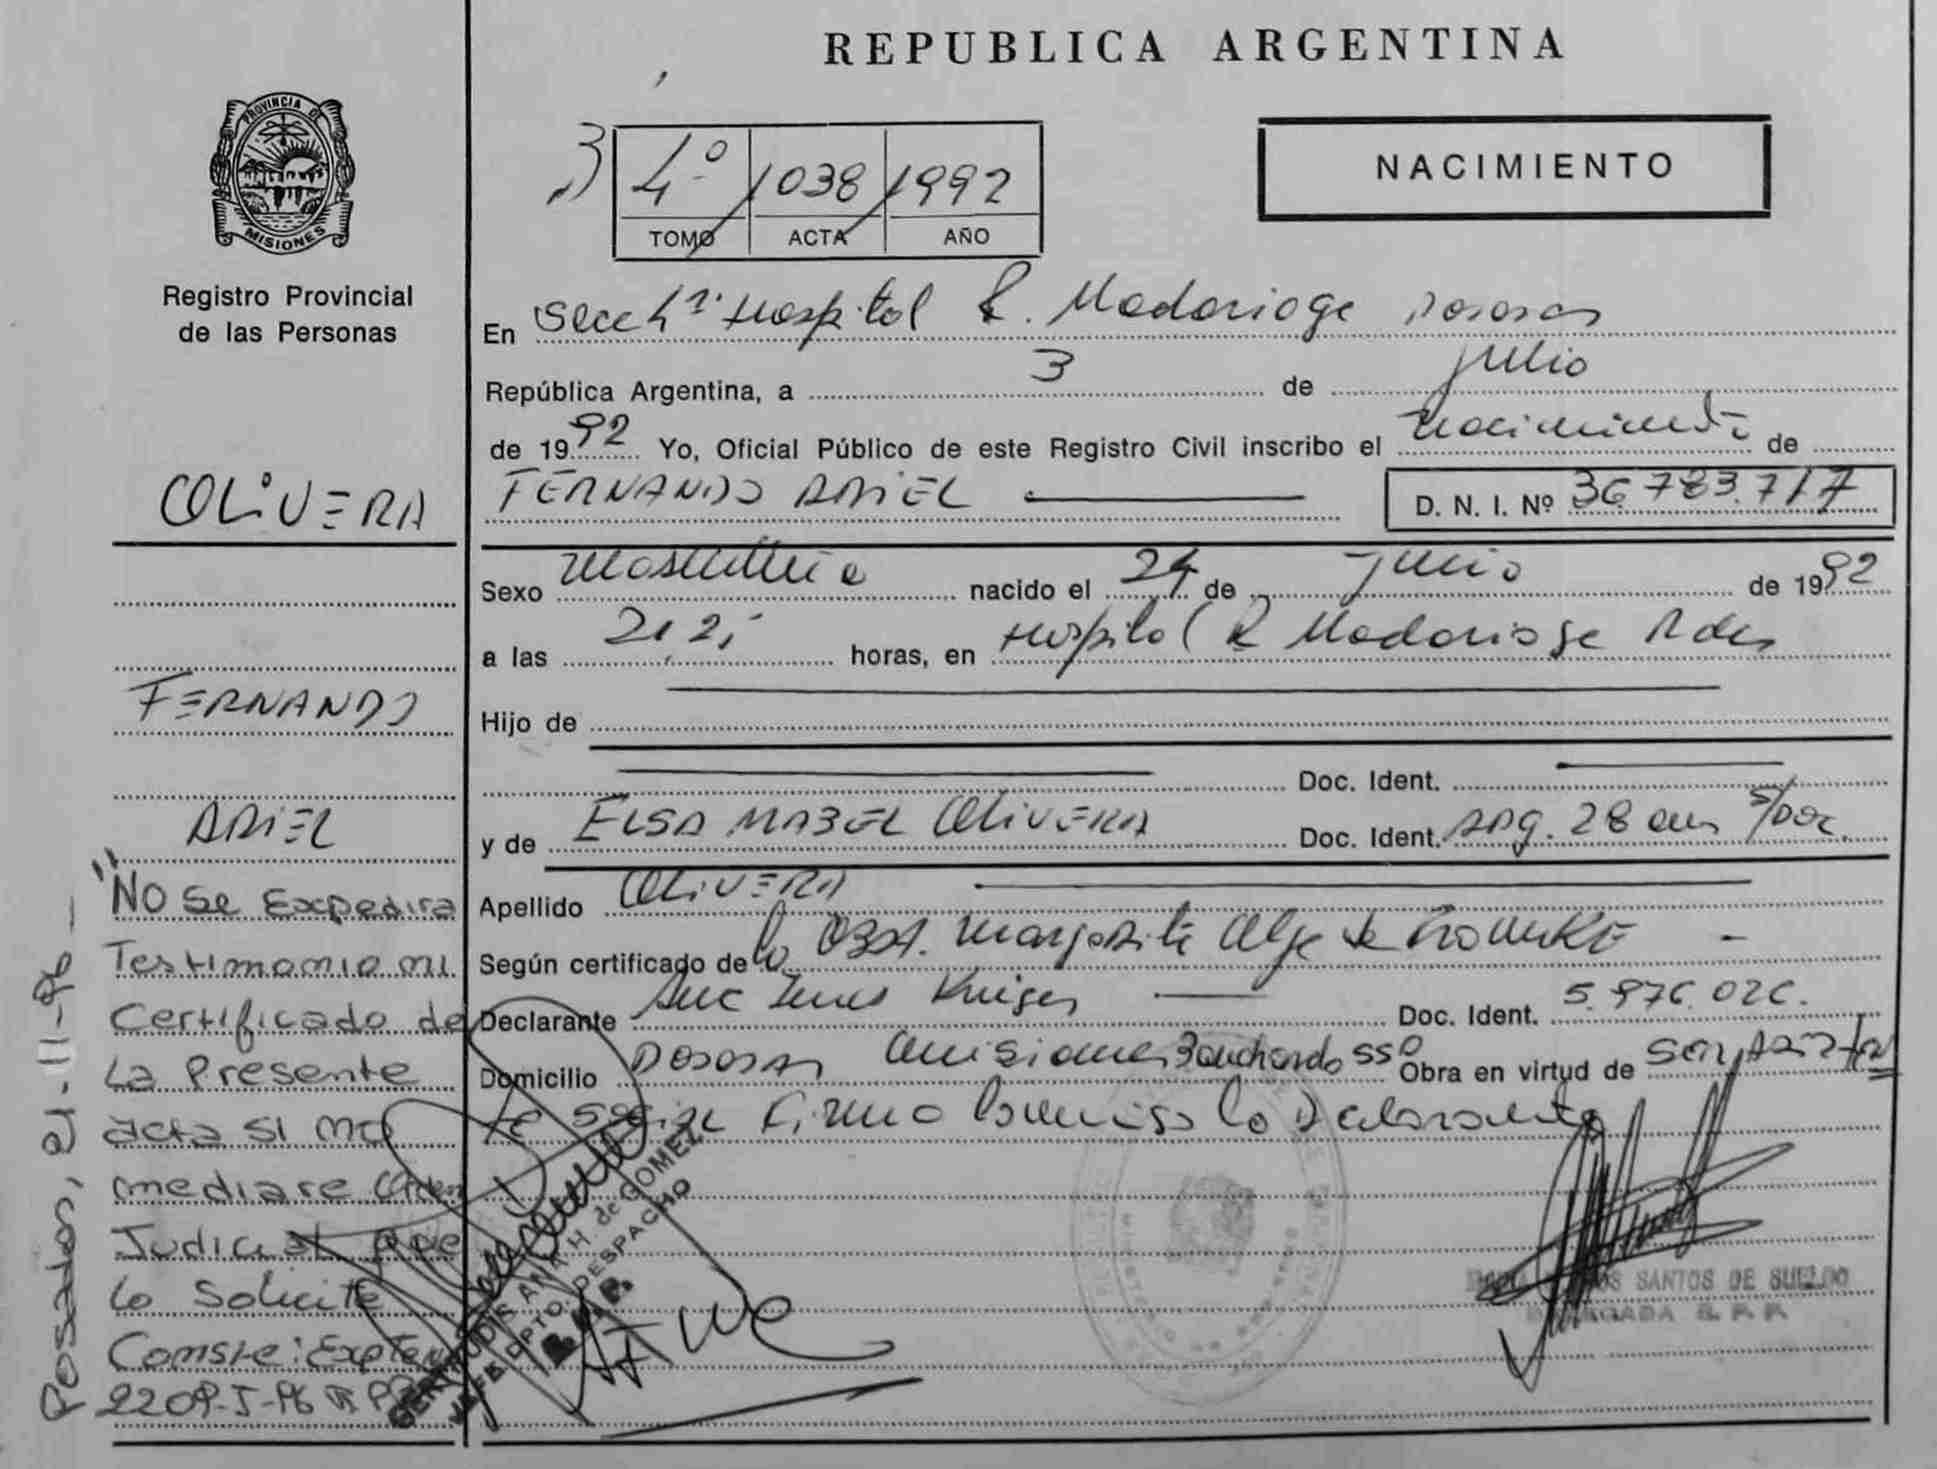 REPUBLICA ARGENTINA
PROVINCIA DE
MISIONES
Registro Provincial
de las Personas
4º 1038 1992
TOMO ACTA AÑO
NACIMIENTO
En Secc 1ª Hospital R. Madariaga Posadas
República Argentina, a 3 de julio
de 1992 Yo, Oficial Público de este Registro Civil inscribo el nacimiento de
FERNANDO ARIEL
D. N. I. Nº 36.783.717
Sexo masculino nacido el 24 de junio de 1992
a las 21,25 horas, en Hospital R Madariaga Pdas
Hijo de
Doc. Ident.
y de ELSA MABEL OLIVERA Doc. Ident. Arg. 28 años s/Doc.
Apellido OLIVERA
Según certificado de la Obst. Margarita
Declarante Doc. Ident. 5.976.026.
Domicilio Posadas Misiones Bouchardo 550 Obra en virtud de
Firma Conmigo la Declarante
OLIVERA
FERNANDO
ARIEL
"NO Se Expedira
Testimonio ni
Certificado de
La Presente
acta SI NO
mediare Orden
Judicial que
lo Solicite
Conste: Expte
2209-I-96
Posadas, 21-11-96
GERTRUDIS ANA H. de GOMEZ
JEFA DPTO. DESPACHO
R.P.P.
SANTOS DE SUELDO
DELEGADA R. P. P.